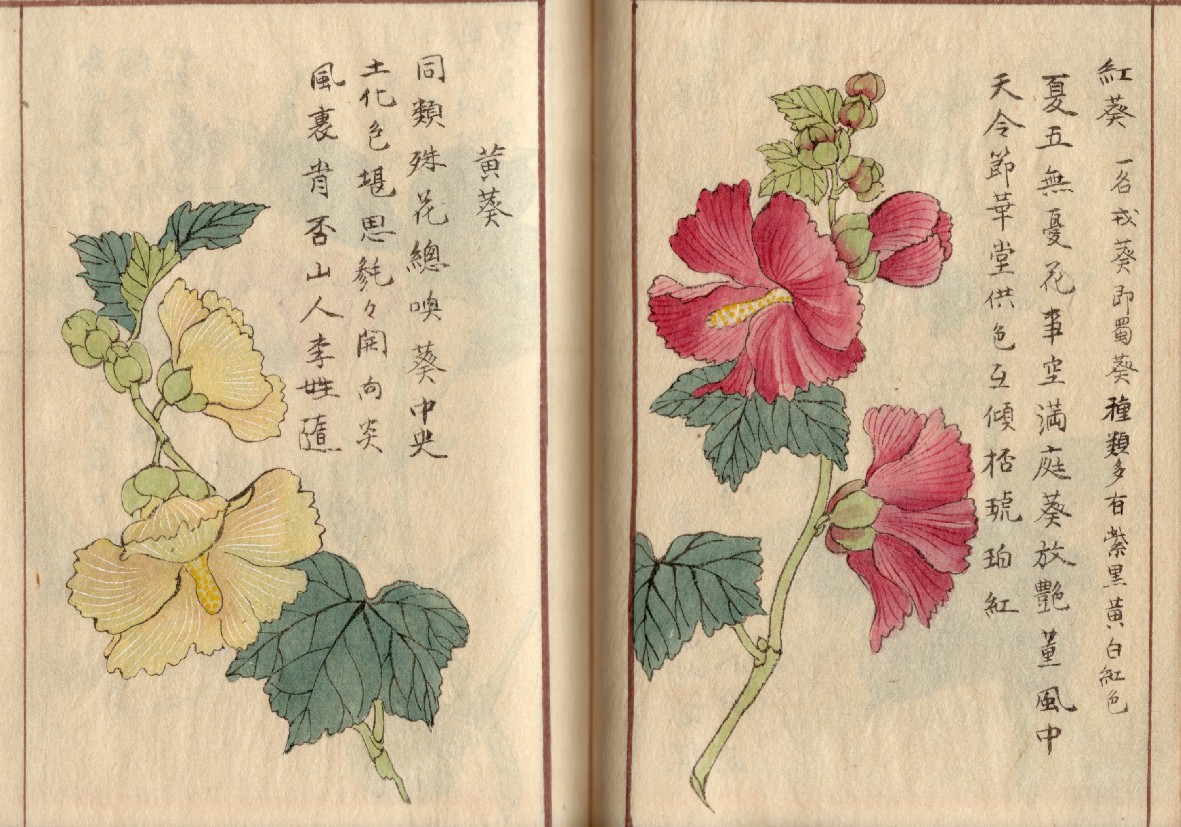 紅葵 一名戎葵即蜀葵種類多有紫黒黄白紅色
夏五無憂花事空満庭葵放艷薫風中
天令節華堂供色互傾桮琥珀紅
黄葵
同類殊花總喚葵中央
土化色堪思毵々開向炎
風裏肯否山人李姓遺